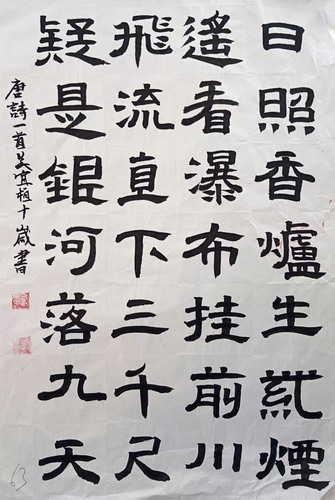 日照香爐生紫煙
遙看瀑布挂前川
飛流直下三千尺
疑是銀河落九天
唐詩一首吴宜植十歲書
63